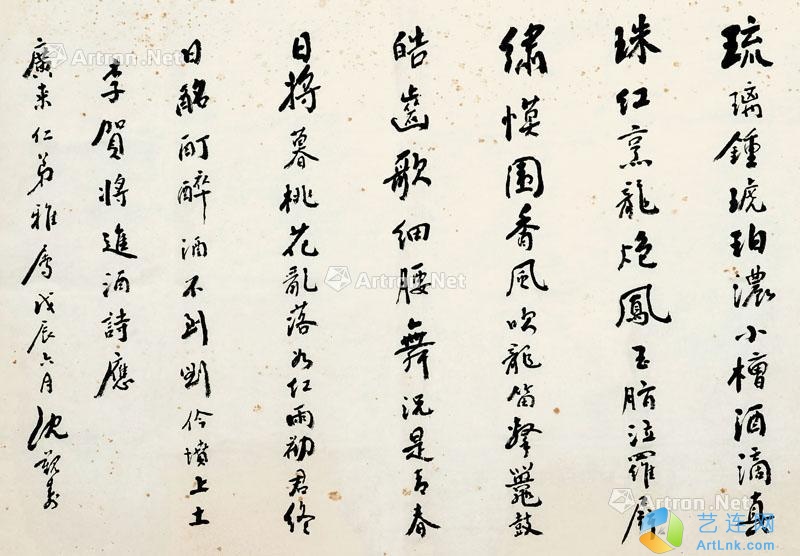 琉璃鍾琥珀濃小槽酒滴真
珠紅烹龍炮鳳玉脂泣羅屏
繡幙圍香風吹龍笛擊鼉鼓
皓齒歌細腰舞況是青春
日將暮桃花亂落如紅雨勸君終
日酩酊醉酒不到劉伶墳上土
李賀將進酒詩應
廣來仁弟雅屬戊辰六月沈觀壽
Artron.Net
Artron.Net
Artron.Net
Artron.Net
Artron.Net
艺连网
ArtLnk.com